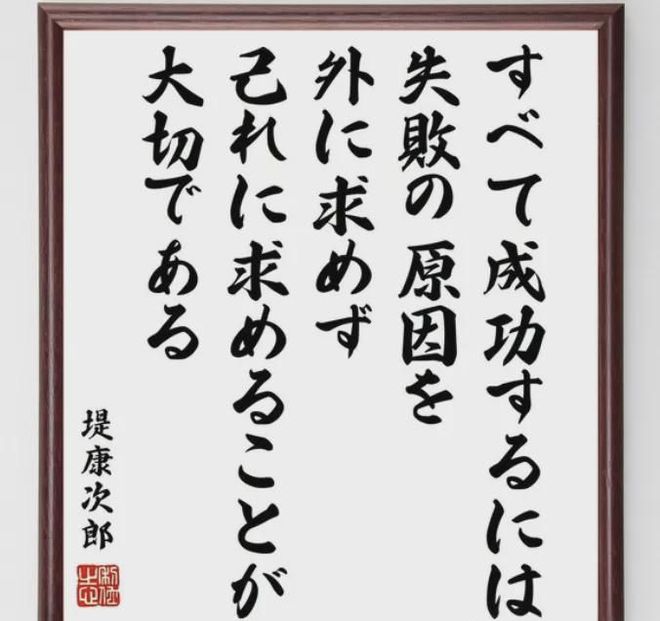 すべて成功するには
失敗の原因を
外に求めず
己れに求めることが
大切である
堤康次郎